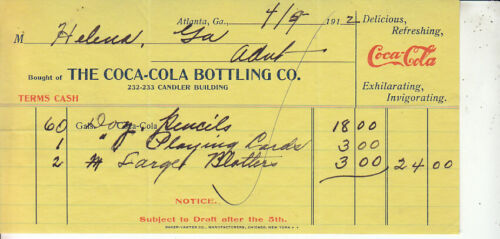 Atlanta, Ga., 4/9 1912
Delicious,
Refreshing,
M Helena, Ga
Advt
Coca-Cola
Bought of THE COCA-COLA BOTTLING CO.
232-233 CANDLER BUILDING
Exhilarating,
Invigorating.
TERMS CASH
60 Gals. Doz Coca-Cola Pencils 18 00
1 " Playing Cards 3 00
2 M Large Blotters 3 00 24 00
NOTICE.
Subject to Draft after the 5th.
BAKER-VAWTER CO., MANUFACTURERS, CHICAGO, NEW YORK